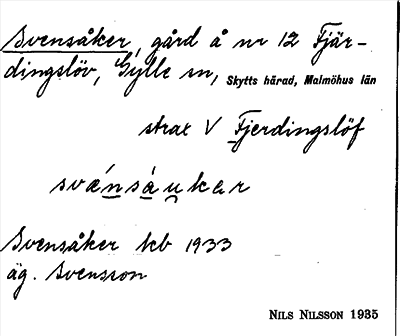 Svensåker, gård å nr 12 Fjär-
dingslöv, Gylle sn, Skytts härad, Malmöhus län
strax V Fjerdingslöf
svǽnsàukar
Svensåker kb 1933
äg. Svensson
NILS NILSSON 1935